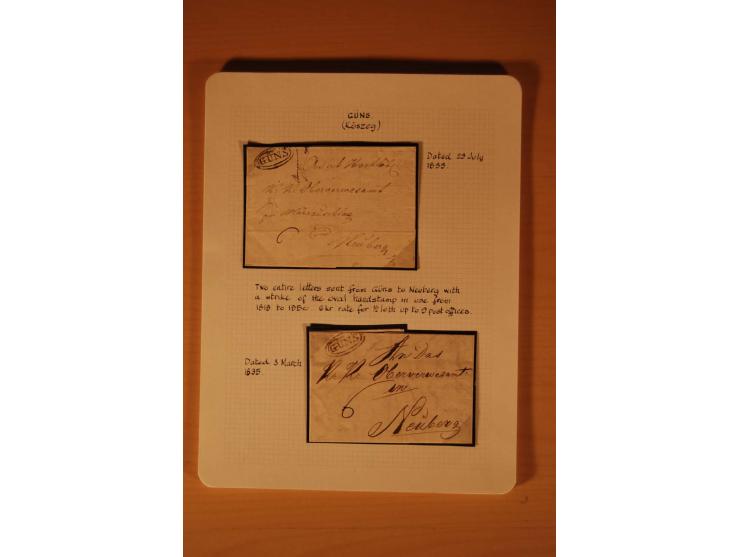 GÜNS.
(Köszeg)
GÜNS
Dated 23 July
1833.
k: k: Oberverwesamt
Neuberg
Two entire letters sent from Güns to Neuberg with
a strike of the oval handstamp in use from
1818 to 1850 6kr rate for ½ loth up to 9 post offices.
Dated 3 March
1835.
GÜNS
An Das
k. k. Oberverwesamt
in
6
Neuberg